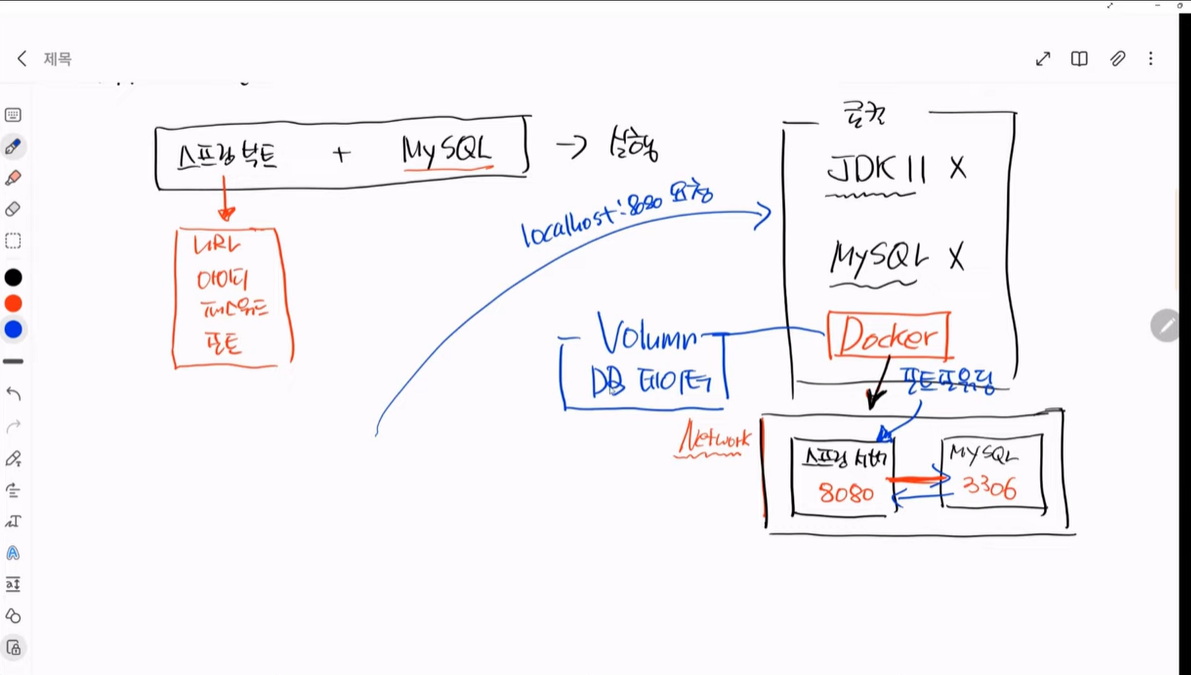 제목
스프링 부트 + MySQL → 실행
URL
아이디
패스워드
포트
localhost:8080 요청
로컬
JDK 11 X
MySQL X
Docker
Volumn
DB 데이터
포트포워딩
Network
스프링 서버
8080
MySQL
3306